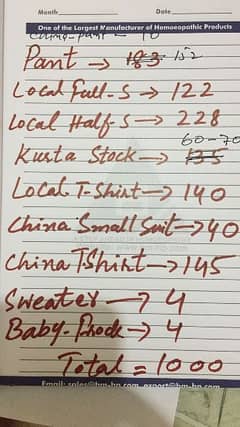 Month Date
One of the Largest Manufacturer of Homoeopathic Products
10
Pant → 183 152
Local Full-S → 122
Local Half-S → 228
60-70
Kurta Stock → 135
Local T-Shirt → 140
China Small Suit → 40
China TShirt → 145
Sweater → 4
Baby-Frock → 4
Total = 1000
Email: sales@bm-hp.com, export@bm-hp.com